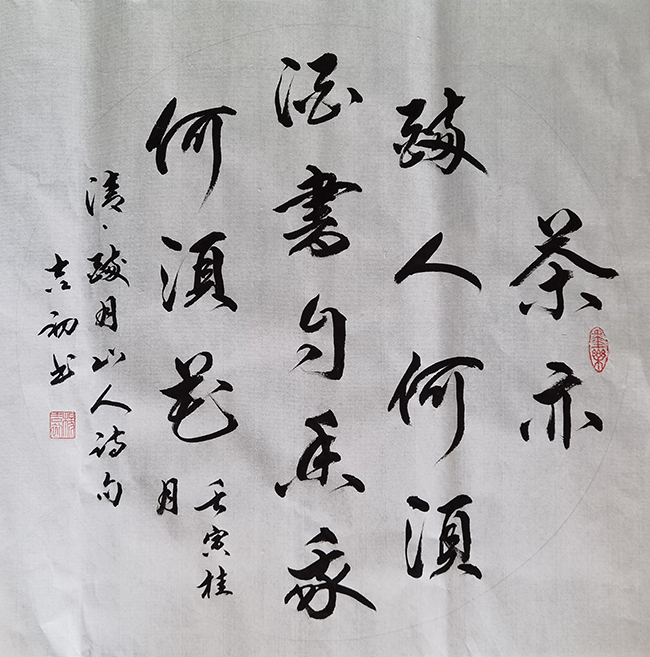 茶亦
醉人何須
酒書自香我
何須花
壬寅桂
月
清·醉月山人诗句
吉初书